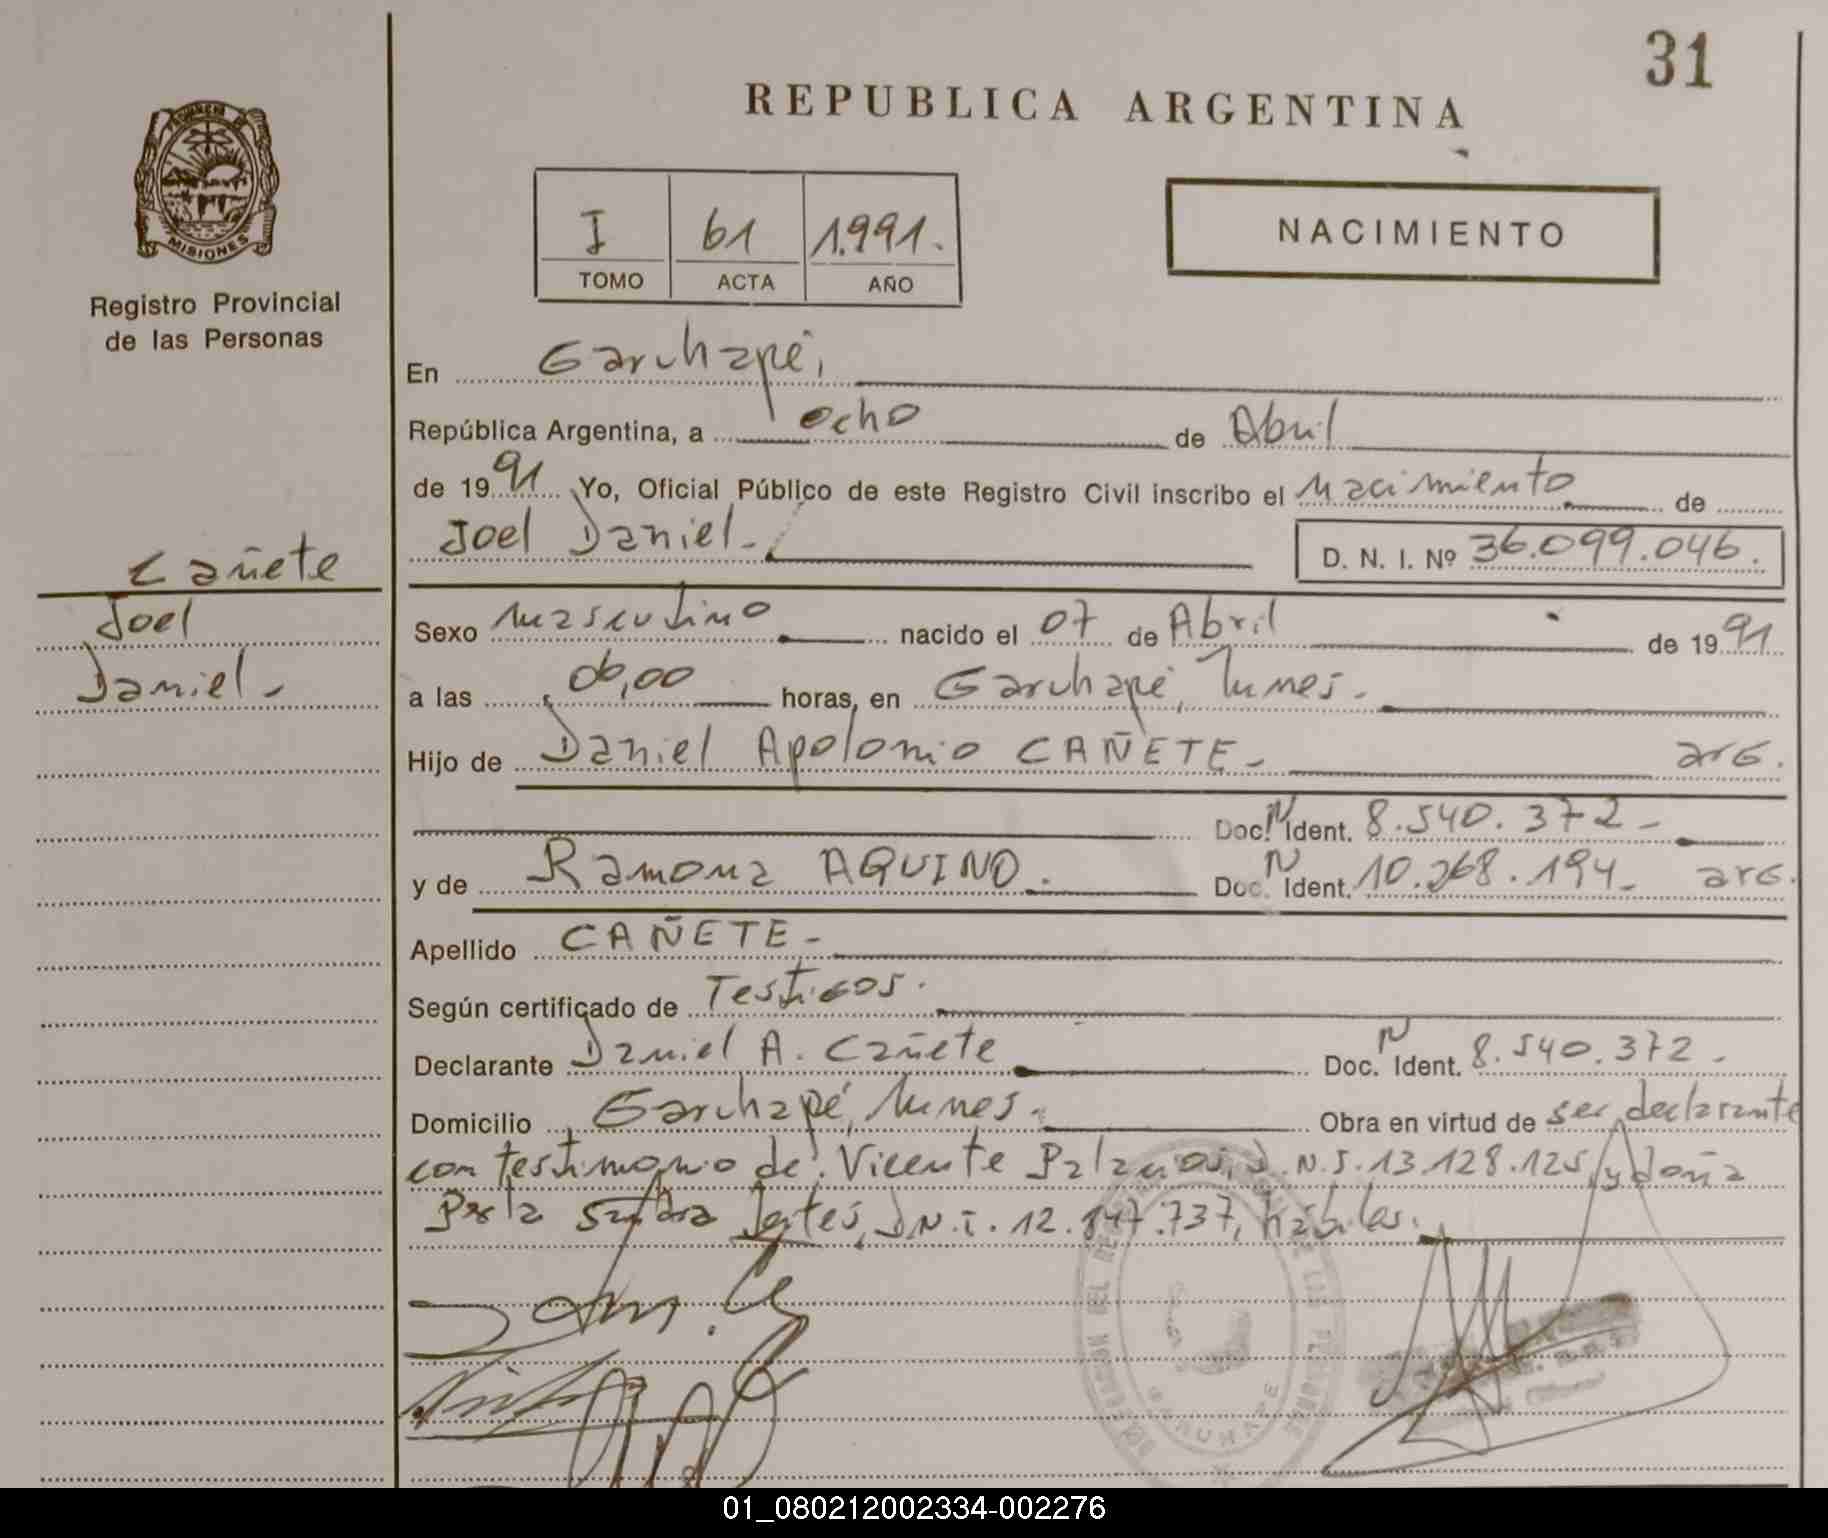 31
REPUBLICA ARGENTINA
MISIONES
Registro Provincial
de las Personas
I 61 1.991.
TOMO ACTA AÑO
NACIMIENTO
En Garuhapé,
República Argentina, a ocho de Abril
de 19 91 Yo, Oficial Público de este Registro Civil inscribo el Nacimiento de
Joel Daniel.- D. N. I. Nº 36.099.046.
Cañete
Joel
Daniel.-
Sexo masculino nacido el 07 de Abril de 19 91
a las 06,00 horas, en Garuhapé, Mnes.-
Hijo de Daniel Apolonio CAÑETE.- arG.
Doc. N Ident. 8.540.372.-
y de Ramona AQUINO. Doc. N Ident. 10.268.194.- arG.
Apellido CAÑETE.-
Según certificado de TestiGos.
Declarante Daniel A. Cañete Doc. N Ident. 8.540.372.-
Domicilio Garuhapé, Mnes.- Obra en virtud de ser declarante
con testimonio de: Vicente D.N.I. 13.128.125, y doña
D.N.I. 12.847.737, hábiles.
GARUHAPE
01_080212002334-002276